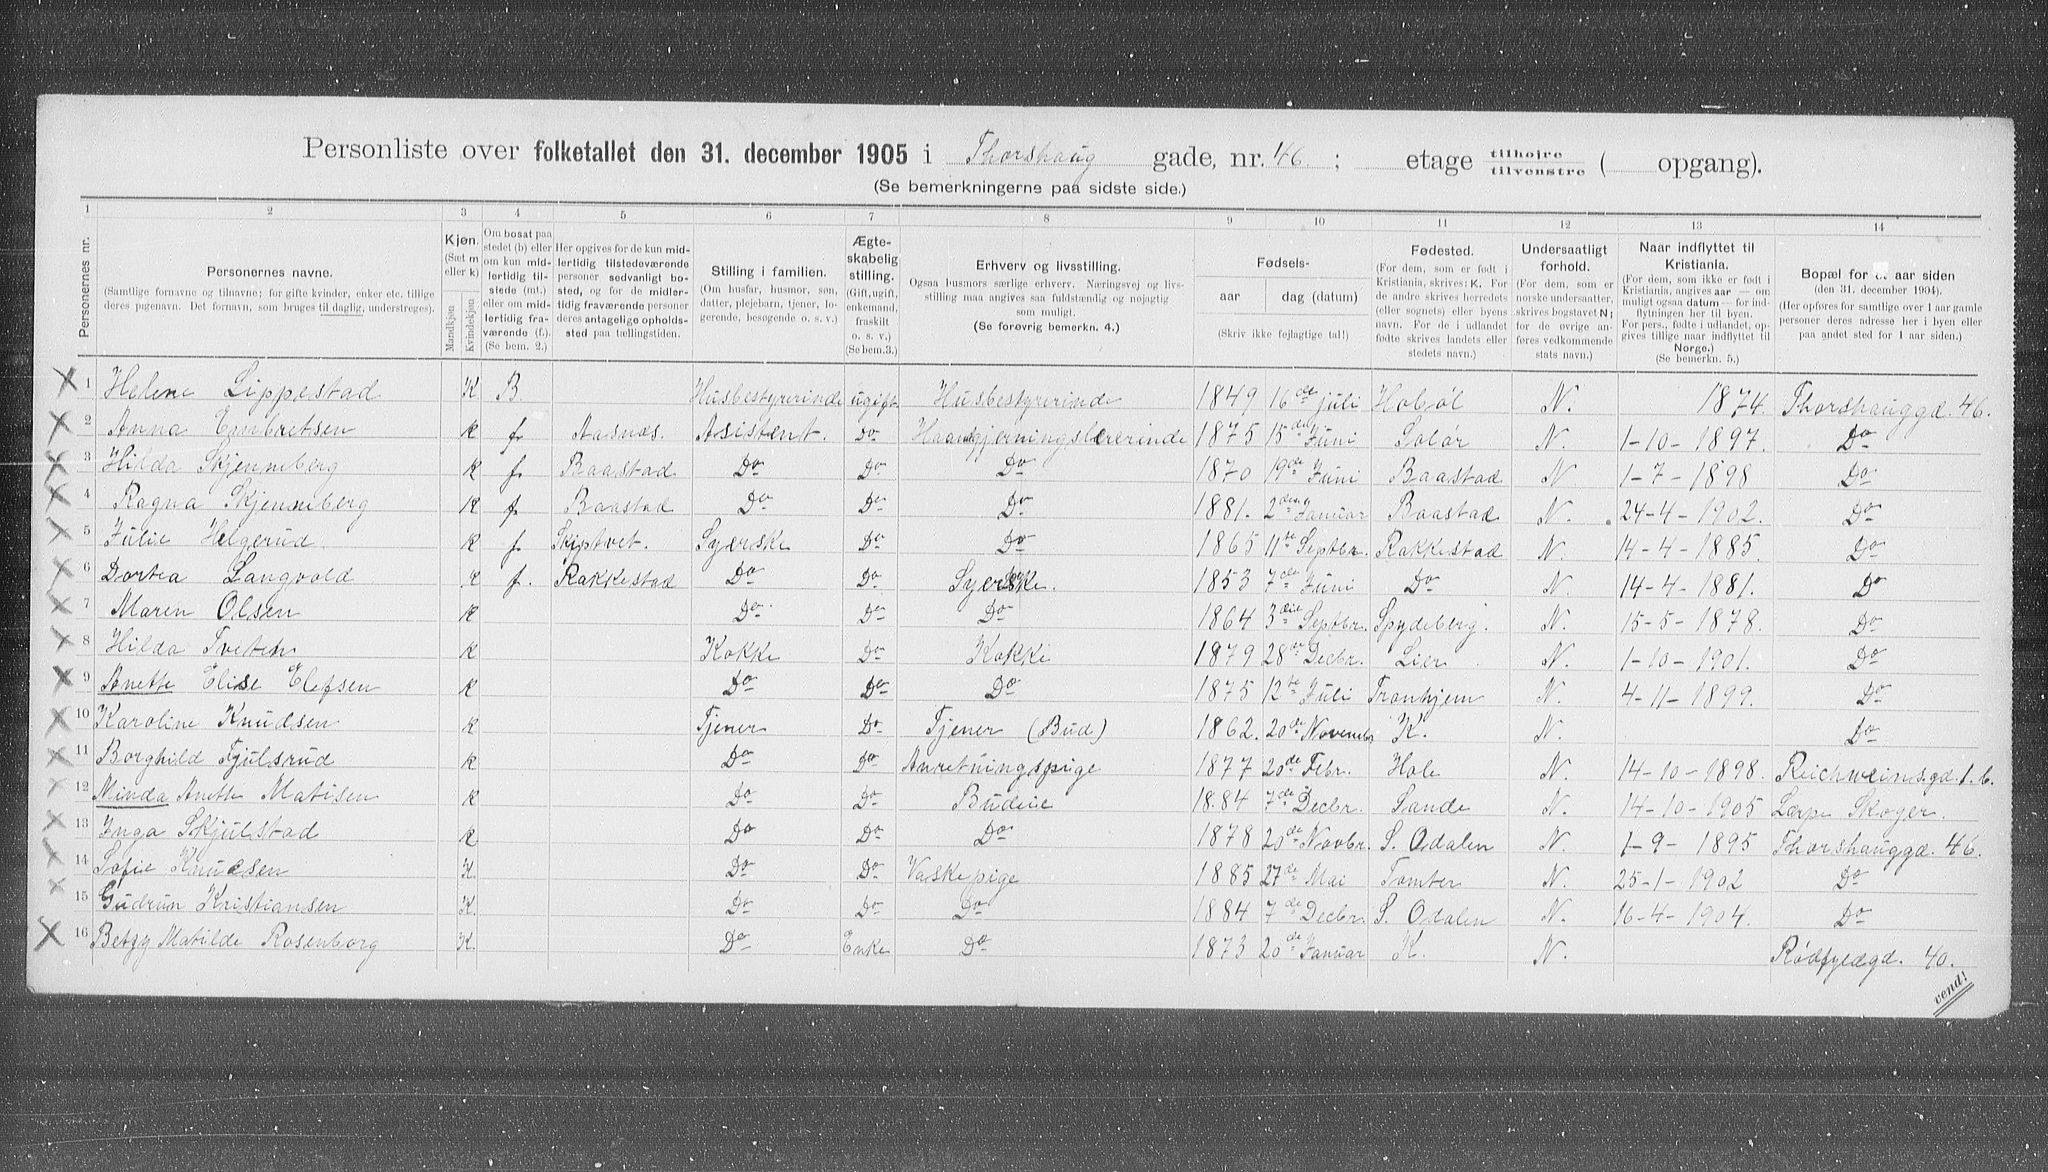 Personliste over folketallet den 31. december 1905 i Thorshaug gade, nr. 46. ; etage tilhøjre tilvenstre ( opgang).
(Se bemerkningerne paa sidste side.)
1 2 3 4 5 6 7 8 9 10 11 12 13 14
Personernes nr.
Personernes navne.
(Samtlige fornavne og tilnavne; for gifte kvinder, enker etc. tillige deres pigenavn. Det fornavn, som bruges til daglig, understreges).
Kjøn.
(Sæt m eller k)
Mandkjøn
Kvindekjøn
Om bosat paa stedet (b) eller om kun midlertidig tilstede (mt.) eller om midlertidig fraværende (f.). (Se bem. 2.)
Her opgives for de kun midlertidig tilstedeværende personer sedvanligt bosted, og for de midlertidig fraværende personer deres antagelige opholdssted paa tællingstiden.
Stilling i familien.
(Om husfar, husmor, søn, datter, plejebarn, tjener, logerende, besøgende o. s. v.)
Ægteskabelig stilling.
(Gift, ugift, enkemand, fraskilt o. s. v.)
(Se bem. 3.)
Erhverv og livsstilling.
Ogsaa husmors særlige erhverv. Næringsvej og livsstilling maa angives saa fuldstændig og nøjagtig som muligt.
(Se forøvrig bemerkn. 4.)
Fødsels-
aar
dag (datum)
(Skriv ikke fejlagtige tal!)
Fødested.
(For dem, som er født i Kristiania, skrives: K. For de andre skrives herredets (eller sognets) eller byens navn. For de i udlandet fødte skrives landets eller stedets navn.)
Undersaatligt forhold.
(For dem, som er norske undersaatter, skrives bogstavet N; for de øvrige anføres vedkommende stats navn.)
Naar indflyttet til Kristiania.
(For dem, som ikke er født i Kristiania, angives aar — om muligt ogsaa datum — for indflytningen her til byen. For pers., fødte i udlandet, opgives tillige naar indflyttet til Norge.)
(Se bemerkn. 5.)
Bopæl for et aar siden
(den 31. december 1904).
(Her opføres for samtlige over 1 aar gamle personer deres adresse her i byen eller paa andet sted for 1 aar siden.)
1 Helene Lippestad K B. Husbestyrerinde ugift. Husbestyrerinde 1849 16de juli Hobøl N. 1874. Thorshauggd. 46.
2 Anna Embretsen k f. Aasnæs. Asistent. Do Haandgjerningslærerinde 1875 15de Juni Solør N. 1-10-1897. Do
3 Hilda Skjenneberg k f. Baastad Do Do Do 1870 19de Juni Baastad N 1-7-1898 Do
4 Ragna Skjenneberg k f. Baastad Do Do Do 1881. 2den Januar Baastad N. 24-4-1902. Do
5 Julie Helgerud k f Skiptvet. Syerske Do Do 1865 11te Septbr. Rakkestad N. 14-4-1885. Do
6 Dortea Langvold k f. Rakkestad Do Do Syerske. 1853 7de Juni Do N 14-4-1881. Do
7 Maren Olsen k Do Do Do 1864 3die Septbr. Spydeberg. N. 15-5-1878. Do
8 Hilda Tveten k Kokke Do Kokke 1879 28de Decbr. Lier N. 1-10-1901. Do
9 Anette Elise Elefsen k Do Do Do 1875 12te Juli Tronhjem N. 4-11-1899. Do
10 Karoline Knudsen k Tjener Do Tjener (Bud) 1862. 20de November K. N. Do
11 Borghild Fjulsrud k Do Do Anretningspige 1877 20de Febr. Hole N. 14-10-1898. Reichweinsgd. 1. b.
12 Ninda Anette Matisen k Do Do Budeie 1884 7de Decbr. Sande N. 14-10-1905 Larpe Skoger.
13 Inga Skjulstad k Do Do Do 1878 20de Novbr. S. Odalen N. 1-9-1895 Thorshauggd. 46.
14 Sofie Knudsen K. Do Do Vaskepige 1885 27de Mai Tomter N. 25-1-1902 Do
15 Gudrun Kristiansen K. Do Do Do 1884 7de Decbr. S. Odalen N. 16-4-1904. Do
16 Betzy Matilde Rosenborg K. Do Enke Do 1873 20de Januar K. N. Rødfyldgd. 40.
vend!